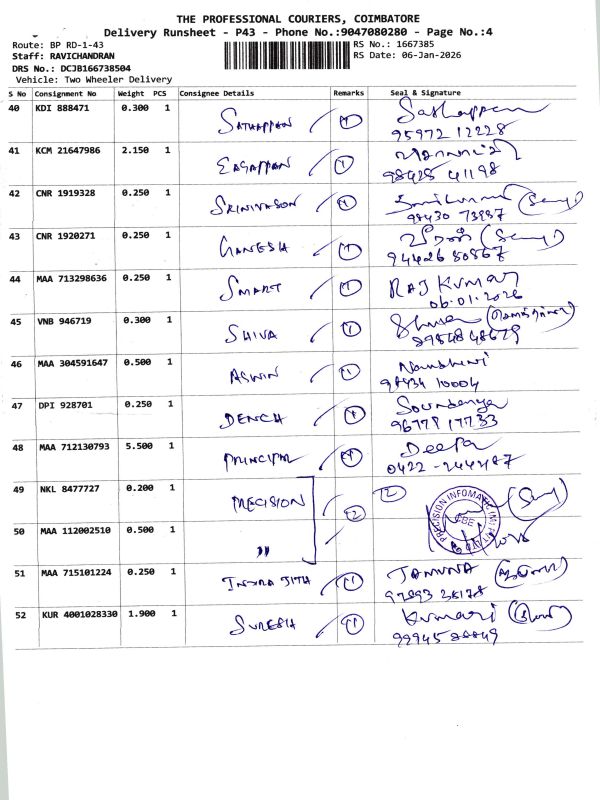 THE PROFESSIONAL COURIERS, COIMBATORE
Delivery Runsheet - P43 - Phone No.:9047080280 - Page No.:4
Route: BP RD-1-43 RS No.: 1667385
Staff: RAVICHANDRAN RS Date: 06-Jan-2026
DRS No.: DCJB166738504
Vehicle: Two Wheeler Delivery
S No Consignment No Weight PCS Consignee Details Remarks Seal & Signature
40 KDI 888471 0.300 1 SATHAPPAN 1 Sathappan
95972 12228
41 KCM 21647986 2.150 1 EAGAPPAN 1
98428 41198
42 CNR 1919328 0.250 1 SRINIVASON 1
98430 73987
43 CNR 1920271 0.250 1 GANESH 1
94426 80867
44 MAA 713298636 0.250 1 SMART 1 RAJ KUMAR
06.01.2026
45 VNB 946719 0.300 1 SHIVA 1
46 MAA 304591647 0.500 1 ASWIN 1
10004
47 DPI 928701 0.250 1 DENCH 1 Soundarya
96779 17733
48 MAA 712130793 5.500 1 PRINCIPAL 1 Deepa
0422 -
49 NKL 8477727 0.200 1 PRECISION 2 2
PRECISION INFOMATIC (M) PVT LTD
CBE
50 MAA 112002510 0.500 1 "
51 MAA 715101224 0.250 1 INDRAJITH 1 JAMUNA
52 KUR 4001028330 1.900 1 SURESH 1 Kumari